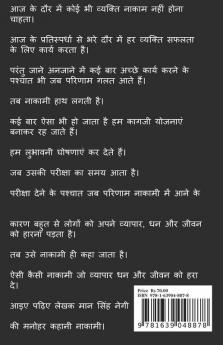 आज के दौर में कोई भी व्यक्ति नाकाम नहीं होना
चाहता।
आज के प्रतिस्पर्धा से भरे दौर में हर व्यक्ति सफलता
के लिए कार्य करता है।
परंतु जाने अनजाने में कई बार अच्छे कार्य करने के
पश्चात भी जब परिणाम गलत आते हैं।
तब नाकामी हाथ लगती है।
कई बार ऐसा भी हो जाता है हम कागजी योजनाएं
बनाकर रह जाते हैं।
हम लुभावनी घोषणाएं कर देते हैं।
जब उसकी परीक्षा का समय आता है।
परीक्षा देने के पश्चात जब परिणाम नाकामी में आने के
कारण बहुत से लोगों को अपने व्यापार, धन और जीवन
को हारना पड़ता है।
तब उसे नाकामी ही कहा जाता है।
ऐसी कैसी नाकामी जो व्यापार धन और जीवन को हरा
दे।
आइए पढ़िए लेखक मान सिंह नेगी
की मनोहर कहानी नाकामी।
Price Rs 70.00
ISBN 978-1-63904-887-8
9 781639 048878